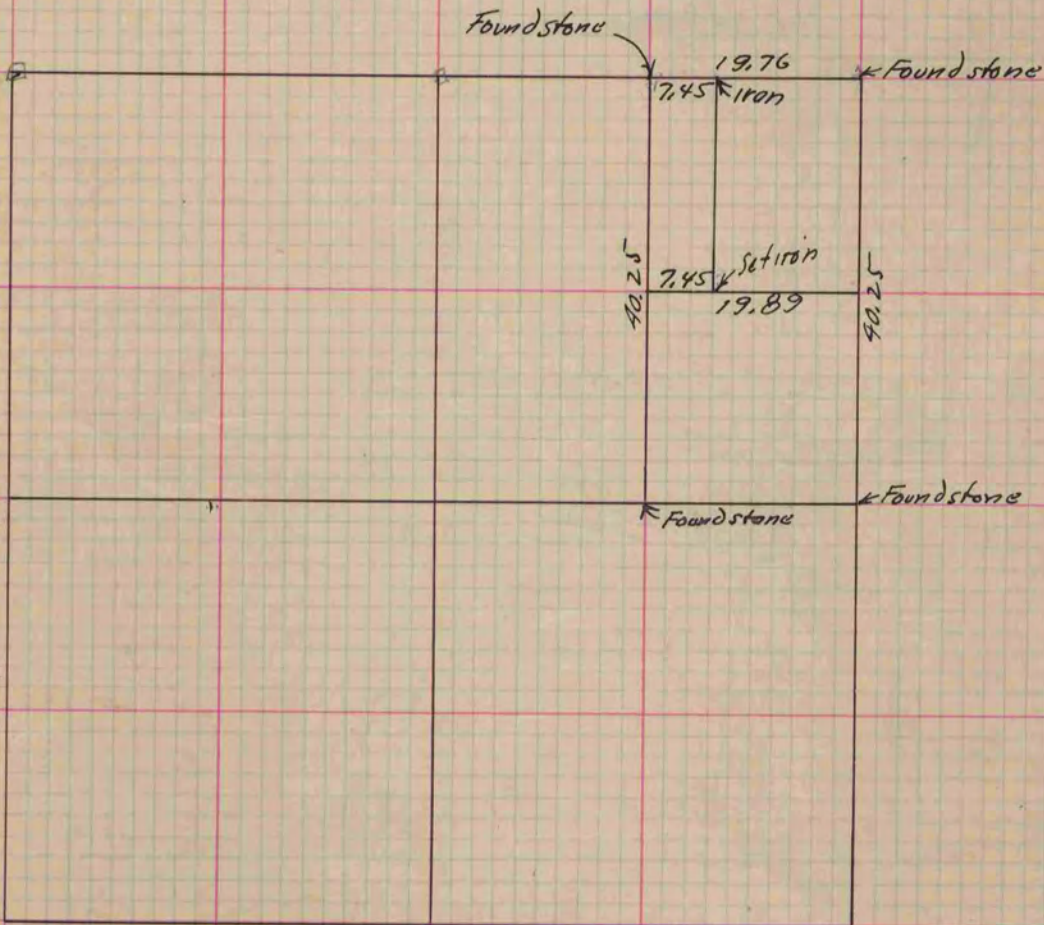 Found stone
19.76
Found stone
7.45
Iron
40.25
7.45
Set iron
19.89
40.25
Found stone
Found stone